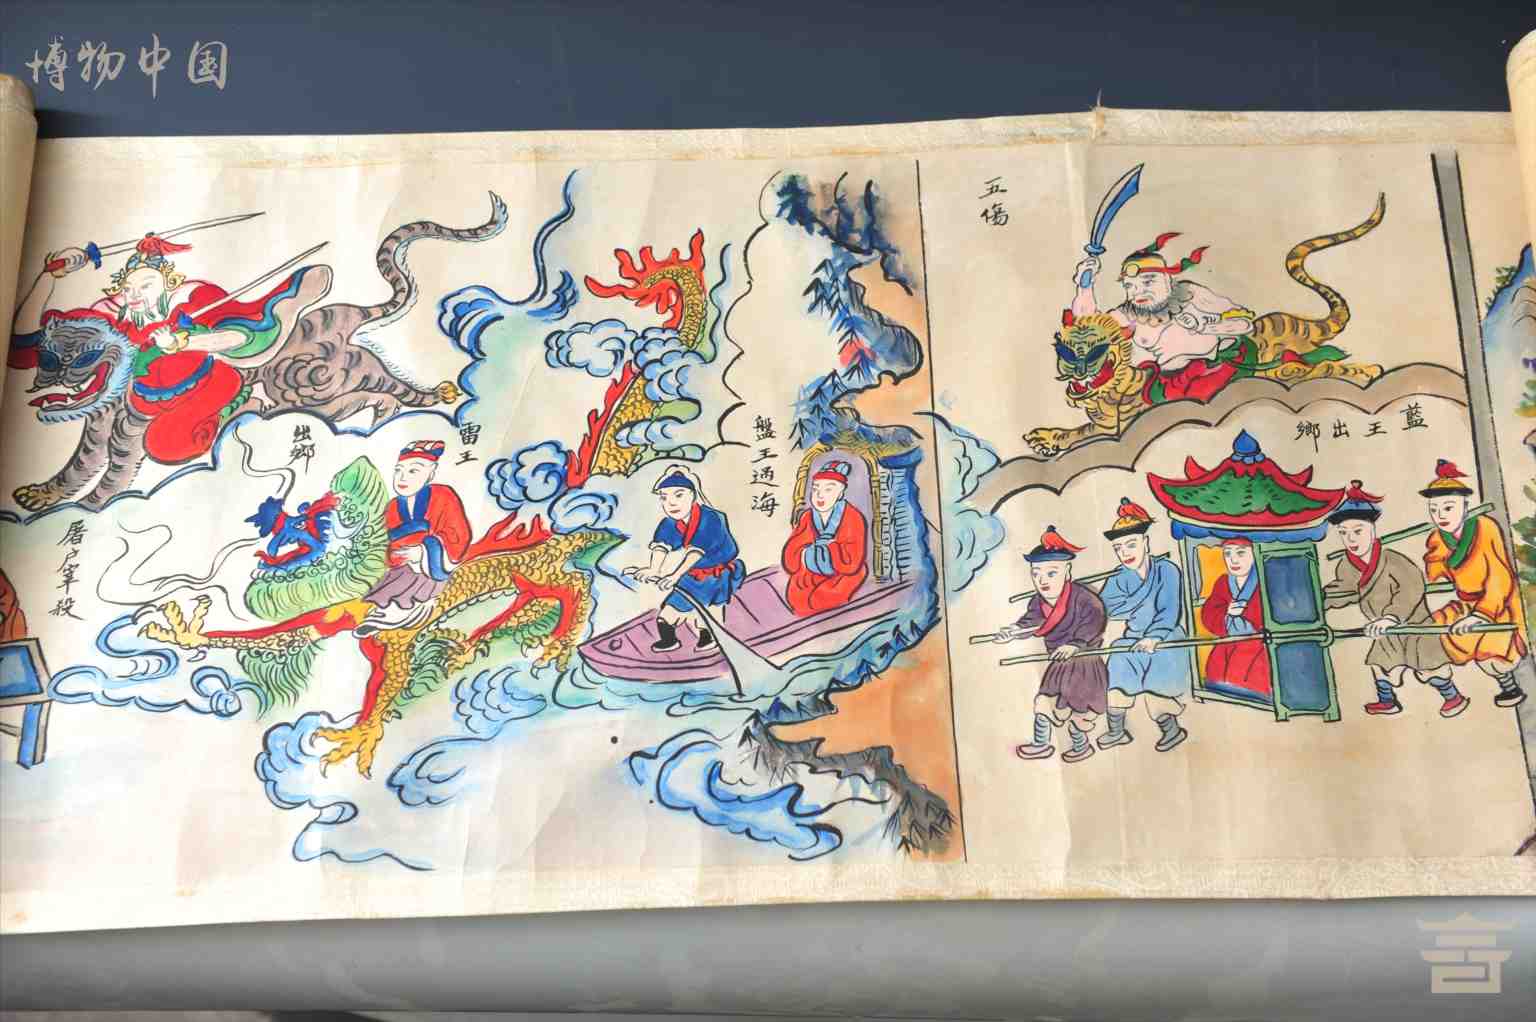 博物中国
五傷
藍王出鄉
盤王過海
雷王
出鄉
屠户宰殺